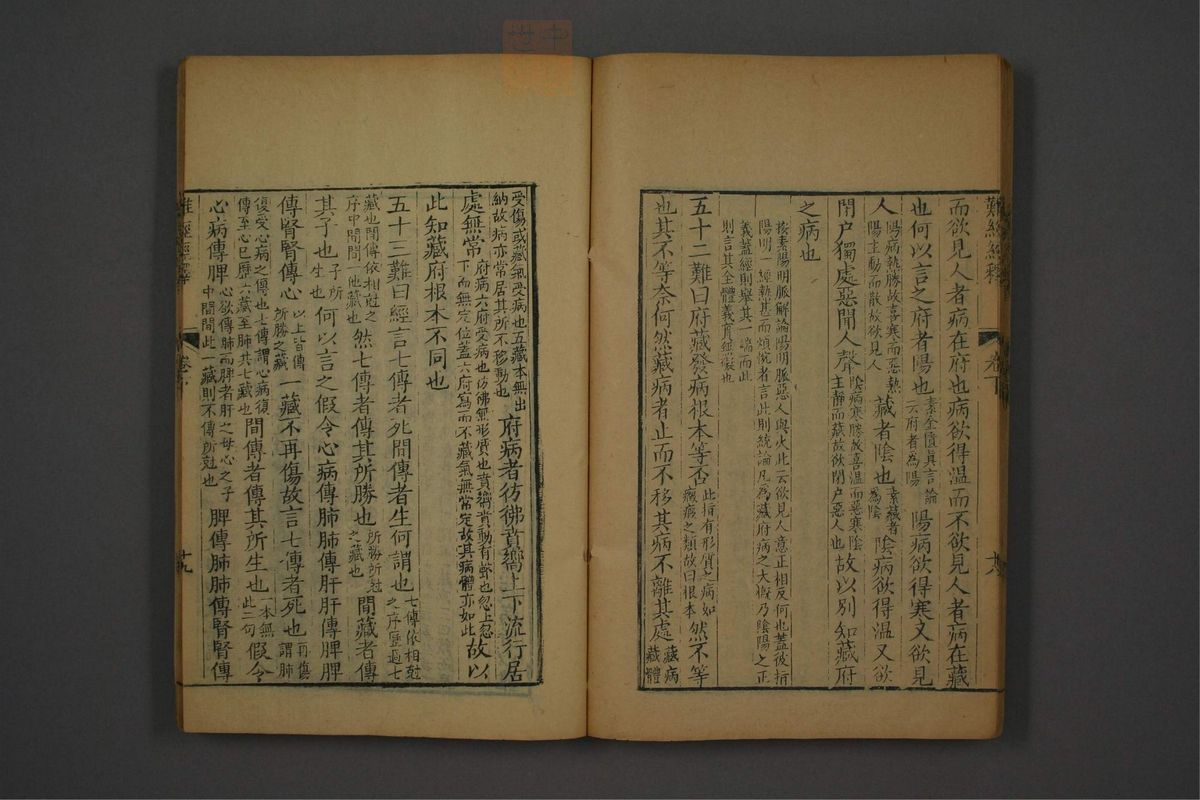 難經經釋
卷下
而欲見人者病在府也病欲得温而不欲見人者病在藏
也何以言之府者陽也素金匱真言論六府者為陽陽病欲得寒又欲見
人陽病熱勝故喜寒而惡熱陽主動而散故欲見人藏者陰也素藏者為陰陰病欲得温又欲
閉户獨處惡聞人聲陰病寒勝故喜温而惡寒陰主靜而藏故欲閉户惡人也故以别知藏府
之病也
按素陽明脈解論陽明脈惡人與火此云欲見人意正相反何也蓋彼指
陽明一經熱甚而煩惋者言此則統論凡為藏府病之大概乃陰陽之正
義蓋經則舉其一端而此
則言其全體義實無礙也
五十二難曰府藏發病根本等否此指有形質之病如癥瘕之類故曰根本然不等
也其不等奈何然藏病者止而不移其病不離其處藏病藏體
受傷或藏氣受病也五藏本無出
納故病亦常居其所不移動也府病者彷彿賁嚮上下流行居
處無常府病六府受病也彷彿無形質也賁嚮賁動有聲也忽上忽下而無定位蓋六府寫而不藏氣無常定故其病體亦如此故以
此知藏府根本不同也
五十三難曰經言七傳者死間傳者生何謂也七傳依相尅之序歴過七
藏也間傳依相尅之序中間間一他藏也然七傳者傳其所勝也所勝所尅之藏也間藏者傳
其子也子所生也何以言之假令心病傳肺肺傳肝肝傳脾脾
傳腎腎傳心以上皆傳所勝之藏一藏不再傷故言七傳者死也再傷謂肺
復受心病之傳也七傳謂心病復傳至心已歴六藏至肺共七藏也間傳者傳其所生也一本無此二句假令
心病傳脾心欲傳肺而脾者肝之母心之子中間間此一藏則不傳所尅也脾傳肺肺傳腎腎傳
難經經釋
卷下
十九